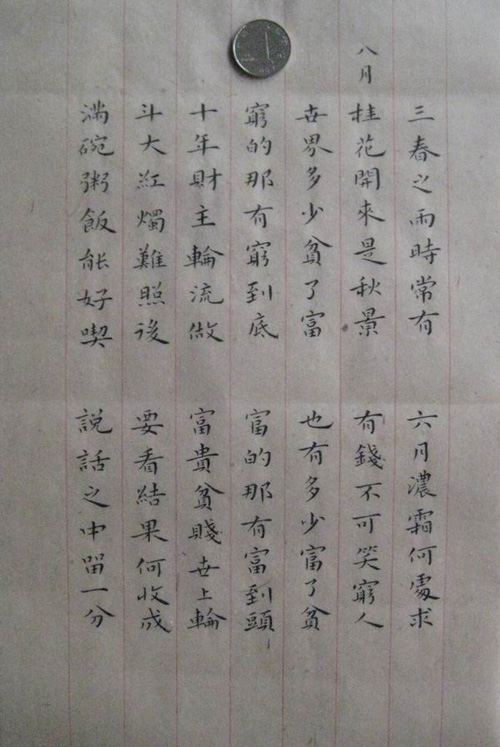 三春之雨時常有 六月濃霜何處求
八月桂花開來是秋景 有錢不可笑窮人
世界多少貧了富 也有多少富了貧
窮的那有窮到底 富的那有富到頭
十年財主輪流做 富貴貧賤世上輪
斗大紅燭難照後 要看結果何收成
滿碗粥飯能好喫 説話之中留一分